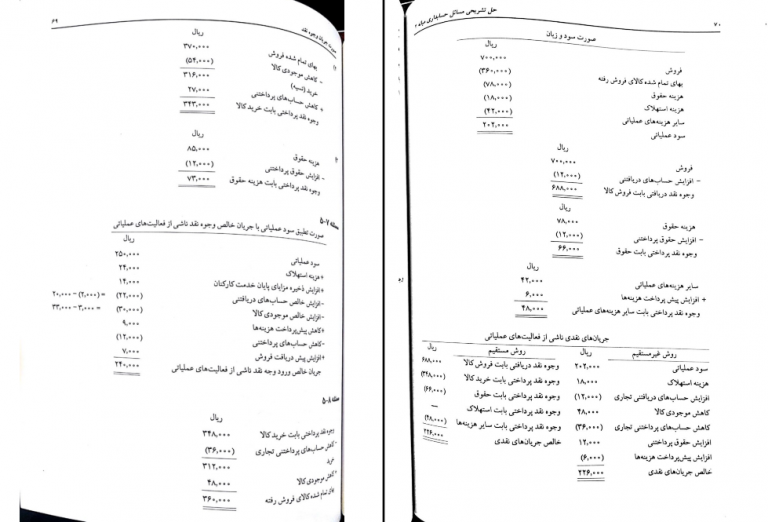 ۶۹
صورت جریان وجوه نقد
ریال
۱
بهای تمام شده فروش ۳۷۰,۰۰۰
- کاهش موجودی کالا (۵۴,۰۰۰)
خرید (نسیه) ۳۱۶,۰۰۰
+ کاهش حساب‌های پرداختنی ۲۷,۰۰۰
وجوه نقد پرداختی بابت خرید کالا ۳۴۳,۰۰۰
ریال
۲
هزینه حقوق ۸۵,۰۰۰
- افزایش حقوق پرداختنی (۱۲,۰۰۰)
وجوه نقد پرداختی بابت هزینه حقوق ۷۳,۰۰۰
مسئله ۷-۵
صورت تطبیق سود عملیاتی با جریان خالص وجوه نقد ناشی از فعالیت‌های عملیاتی
ریال
سود عملیاتی ۲۵۰,۰۰۰
+هزینه استهلاک ۲۴,۰۰۰
+افزایش ذخیره مزایای پایان خدمت کارکنان ۱۴,۰۰۰
-افزایش خالص حساب‌های دریافتنی (۲۲,۰۰۰) = (۲,۰۰۰) - ۲۰,۰۰۰
-افزایش خالص موجودی کالا (۳۰,۰۰۰) = ۳,۰۰۰ - ۳۳,۰۰۰
+کاهش پیش‌پرداخت هزینه‌ها ۹,۰۰۰
-کاهش حساب‌های پرداختنی (۱۲,۰۰۰)
+افزایش پیش دریافت فروش ۷,۰۰۰
جریان خالص ورود وجه نقد ناشی از فعالیت‌های عملیاتی ۲۴۰,۰۰۰
مسئله ۸-۵
ریال
وجوه نقد پرداختی بابت خرید کالا ۳۴۸,۰۰۰
- کاهش حساب‌های پرداختنی تجاری (۳۶,۰۰۰)
خرید ۳۱۲,۰۰۰
+ کاهش موجودی کالا ۴۸,۰۰۰
بهای تمام شده کالای فروش رفته ۳۶۰,۰۰۰
۷۰
حل تشریحی مسائل حسابداری میانه
صورت سود و زیان
ریال
فروش ۷۰۰,۰۰۰
بهای تمام شده کالای فروش رفته (۳۶۰,۰۰۰)
هزینه حقوق (۷۸,۰۰۰)
هزینه استهلاک (۱۸,۰۰۰)
سایر هزینه‌های عملیاتی (۴۲,۰۰۰)
سود عملیاتی ۲۰۲,۰۰۰
ریال
فروش ۷۰۰,۰۰۰
- افزایش حساب‌های دریافتنی (۱۲,۰۰۰)
وجوه نقد دریافتی بابت فروش کالا ۶۸۸,۰۰۰
ریال
هزینه حقوق ۷۸,۰۰۰
- افزایش حقوق پرداختنی (۱۲,۰۰۰)
وجوه نقد پرداختی بابت حقوق ۶۶,۰۰۰
ریال
سایر هزینه‌های عملیاتی ۴۲,۰۰۰
+ افزایش پیش پرداخت هزینه‌ها ۶,۰۰۰
وجوه نقد پرداختی بابت سایر هزینه‌های عملیاتی ۴۸,۰۰۰
جریان‌های نقدی ناشی از فعالیت‌های عملیاتی
روش غیرمستقیم ریال روش مستقیم ریال
سود عملیاتی ۲۰۲,۰۰۰ وجوه نقد دریافتی بابت فروش کالا ۶۸۸,۰۰۰
هزینه استهلاک ۱۸,۰۰۰ وجوه نقد پرداختی بابت خرید کالا (۳۴۸,۰۰۰)
افزایش حساب‌های دریافتنی تجاری (۱۲,۰۰۰) وجوه نقد پرداختی بابت حقوق (۶۶,۰۰۰)
کاهش موجودی کالا ۴۸,۰۰۰ وجوه نقد پرداختی بابت استهلاک —
کاهش حساب‌های پرداختنی تجاری (۳۶,۰۰۰) وجوه نقد پرداختی بابت سایر هزینه‌ها (۴۸,۰۰۰)
افزایش حقوق پرداختنی ۱۲,۰۰۰ خالص جریان‌های نقدی ۲۲۶,۰۰۰
افزایش پیش‌پرداخت هزینه‌ها (۶,۰۰۰)
خالص جریان‌های نقدی ۲۲۶,۰۰۰